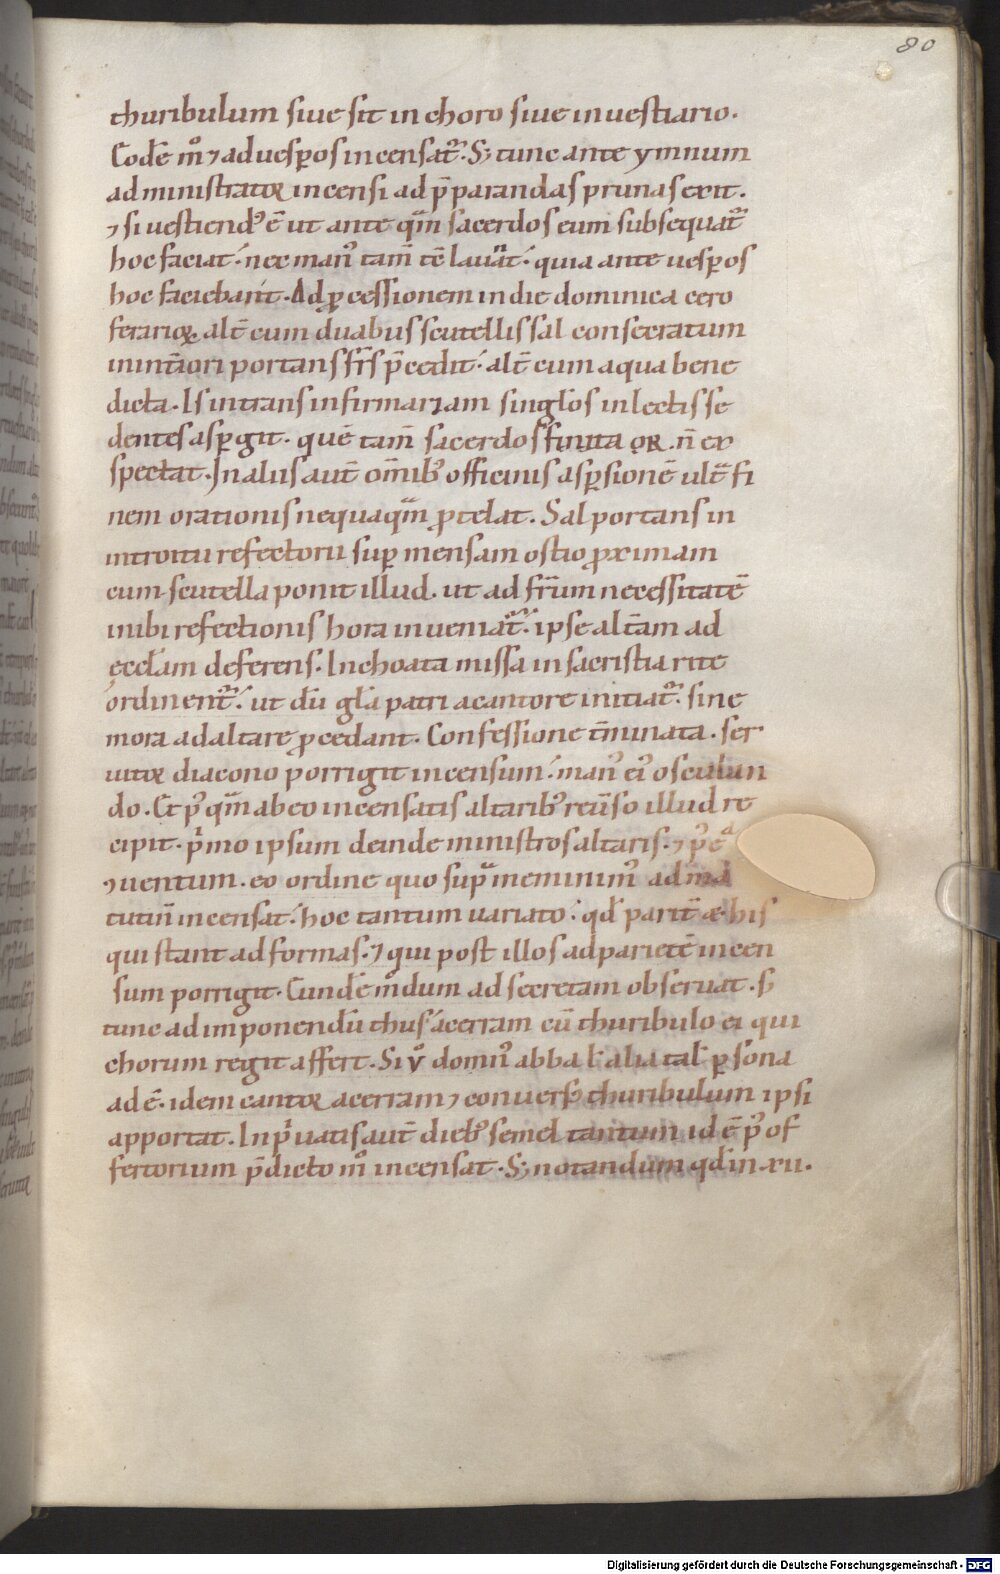 80
thuribulum siue sit in choro siue in uestiario.
Eodē m̊ ⁊ ad uesꝑos incensat᷑. Sꝫ tunc ante ymnum
administratoꝝ incensi ad p̄parandas prunas exit.
⁊ si uestiendꝰ ē ut ante qͣm sacerdos eum subsequat᷑
hoc faciat. nec manꝰ tam̄ tē lauat. quia ante uesꝑos
hoc faciebant. Ad ꝓcessionem in die dominica cero
ferarioꝝ. alt̄ cum duabus scutellis sal consecratum
in intāori portans fr̄s p̄cedit. alt̄ cum aqua bene
dicta. Is intrans infirmariam singl̄os in lectis se
dentes asꝑgit. quē tam̄ sacerdos finita oR. n̄ ex
spectat. In aliis aut̄ om̄ibꝰ officinis asꝑsionē ult̄ fi
nem orationis nequaqͣm ꝓtelat. Sal portans in
introitu refectorii suꝑ mensam ostio ꝓximam
cum scutella ponit illud. ut ad fr̄um necessitatē
inibi refectionis hora inueniat᷑. ipse alt̄am ad
ęccl̄am deferens. Inchoata missa in sacristia rite
ordinent᷑. ut dū gl̄a patri a cantore initiat᷑. sine
mora ad altare ꝓcedant. Confessione t̄minata. ser
uitoꝝ diacono porrigit incensum. manꝰ eiꝰ osculan
do. Et pꝰ qͣm ab eo incensatis altaribꝰ reūso illud re
cipit. p̄mo ipsum deinde ministros altaris. ⁊ pꝰ eͣ
⁊uentum. eo ordine quo supͣ meminimꝰ ad ma
tutin̄ incensat. hoc tantum uariato. qđ parit̄ æ his
qui stant ad formas. ⁊ qui post illos ad parietē incen
sum porrigit. Eundē m̊dum ad secretam obseruat. s̄
tunc ad imponendū thus acerram cū thuribulo ei qui
chorum regit affert. Si v̊ domnꝰ abba ł alia tal̄ ꝑsona
adē. idem cantoꝝ acerram ⁊ conuersꝰ thuribulum ipsi
apportat. In p̍uatis aut̄ diebꝰ semel tantum id ē pꝰ of
fertorium p̄dicto m̊ incensat. Sꝫ notandum qđ in .xii.
Digitalisierung gefördert durch die Deutsche Forschungsgemeinschaft - DFG